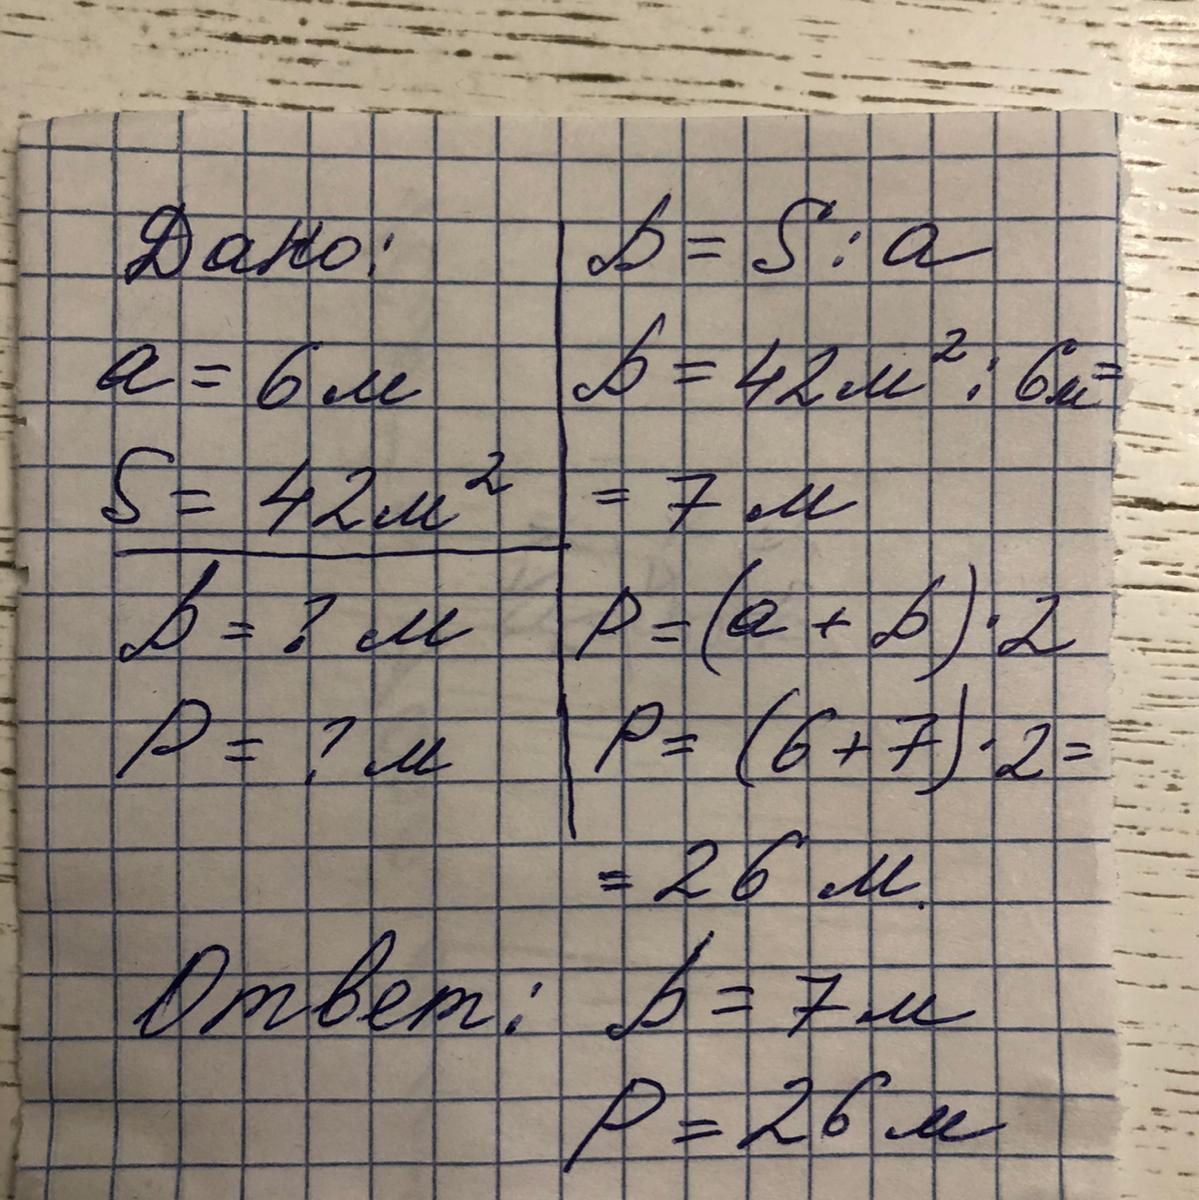 Дано:
a = 6 м
S = 42 м²
b = ? м
P = ? м
b = S : a
b = 42 м² : 6м =
= 7 м
P = (a + b) · 2
P = (6 + 7) · 2 =
= 26 м.
Ответ: b = 7 м
P = 26 м